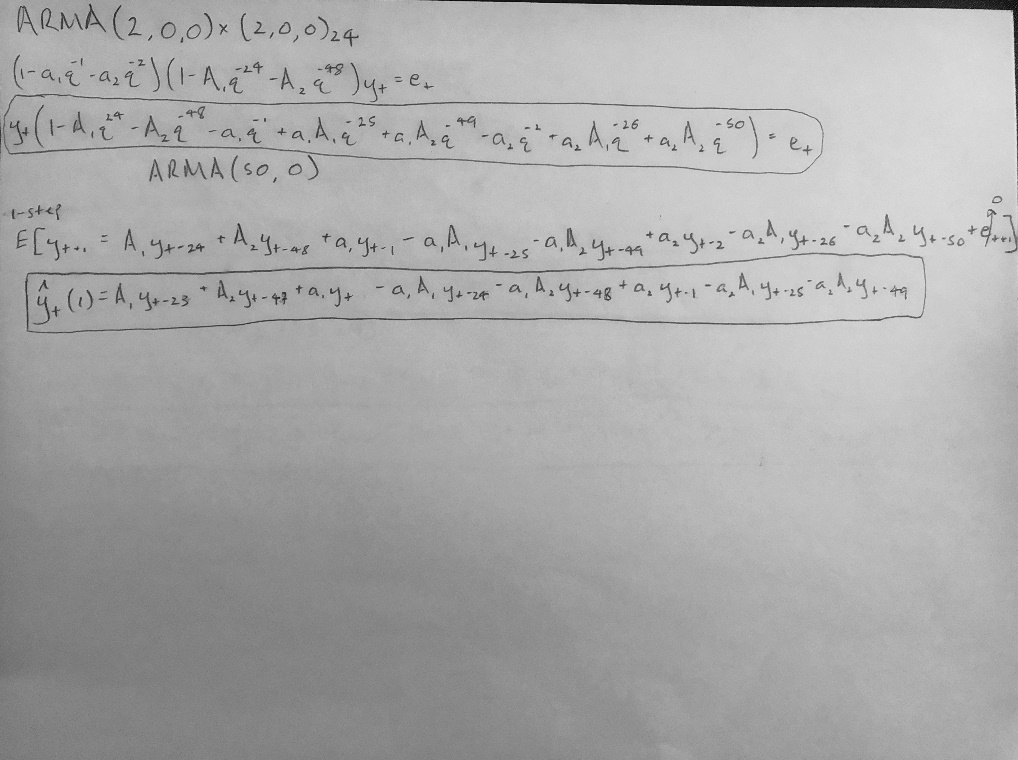 ARMA(2,0,0)×(2,0,0)₂₄
(1-a₁q⁻¹-a₂q⁻²)(1-A₁q⁻²⁴-A₂q⁻⁴⁸)yₜ=eₜ
yₜ(1-A₁q²⁴-A₂q⁻⁴⁸-a₁q⁻¹+a₁A₁q⁻²⁵+a₁A₂q⁻⁴⁹-a₂q⁻²+a₂A₁q⁻²⁶+a₂A₂q⁻⁵⁰)=eₜ
ARMA(50,0)
1-step
0
E[yₜ₊₁ = A₁yₜ₋₂₄ + A₂yₜ₋₄₈ + a₁yₜ₋₁ - a₁A₁yₜ₋₂₅ - a₁A₂yₜ₋₄₉ + a₂yₜ₋₂ - a₂A₁yₜ₋₂₆ - a₂A₂yₜ₋₅₀ + eₜ₊₁]
ŷₜ(1) = A₁yₜ₋₂₃ + A₂yₜ₋₄₇ + a₁yₜ - a₁A₁yₜ₋₂₄ - a₁A₂yₜ₋₄₈ + a₂yₜ₋₁ - a₂A₁yₜ₋₂₅ - a₂A₂yₜ₋₄₉